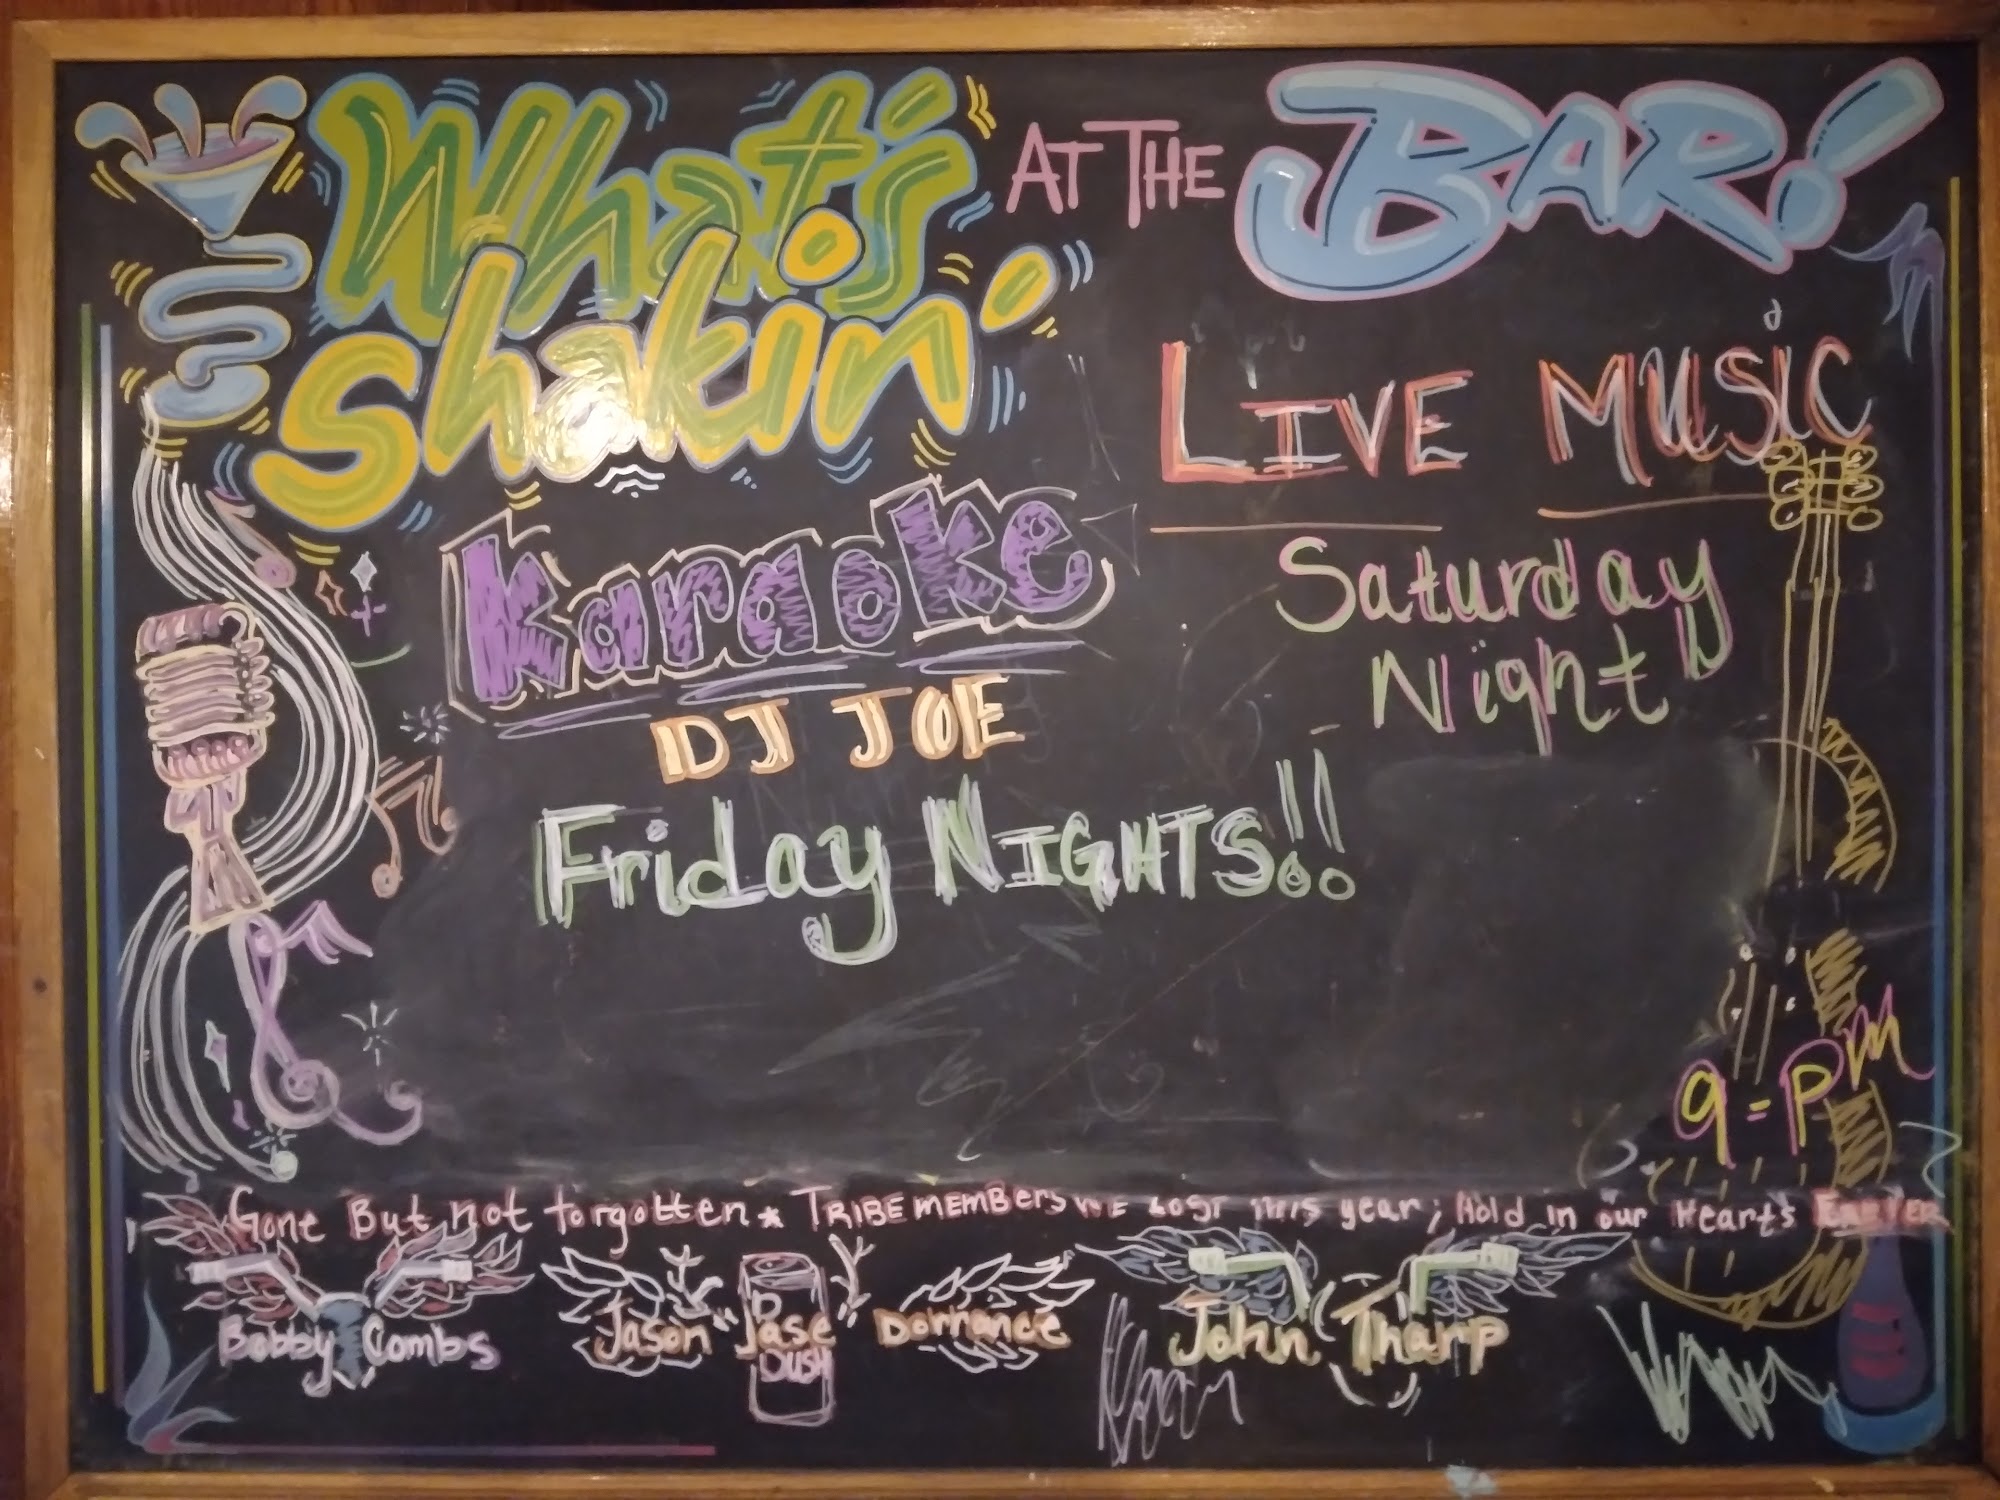 What's
Shakin'
AT THE BAR!
LIVE MUSIC
Saturday
Night
Karaoke
DJ JOE
Friday NIGHTS!!
9 - Pm
Gone But not forgotten * TRIBE MEMBERS WE LOST THIS year; Hold in our Hearts FOREVER
Bobby Combs
Jason "Jase" Dorrance
John Tharp